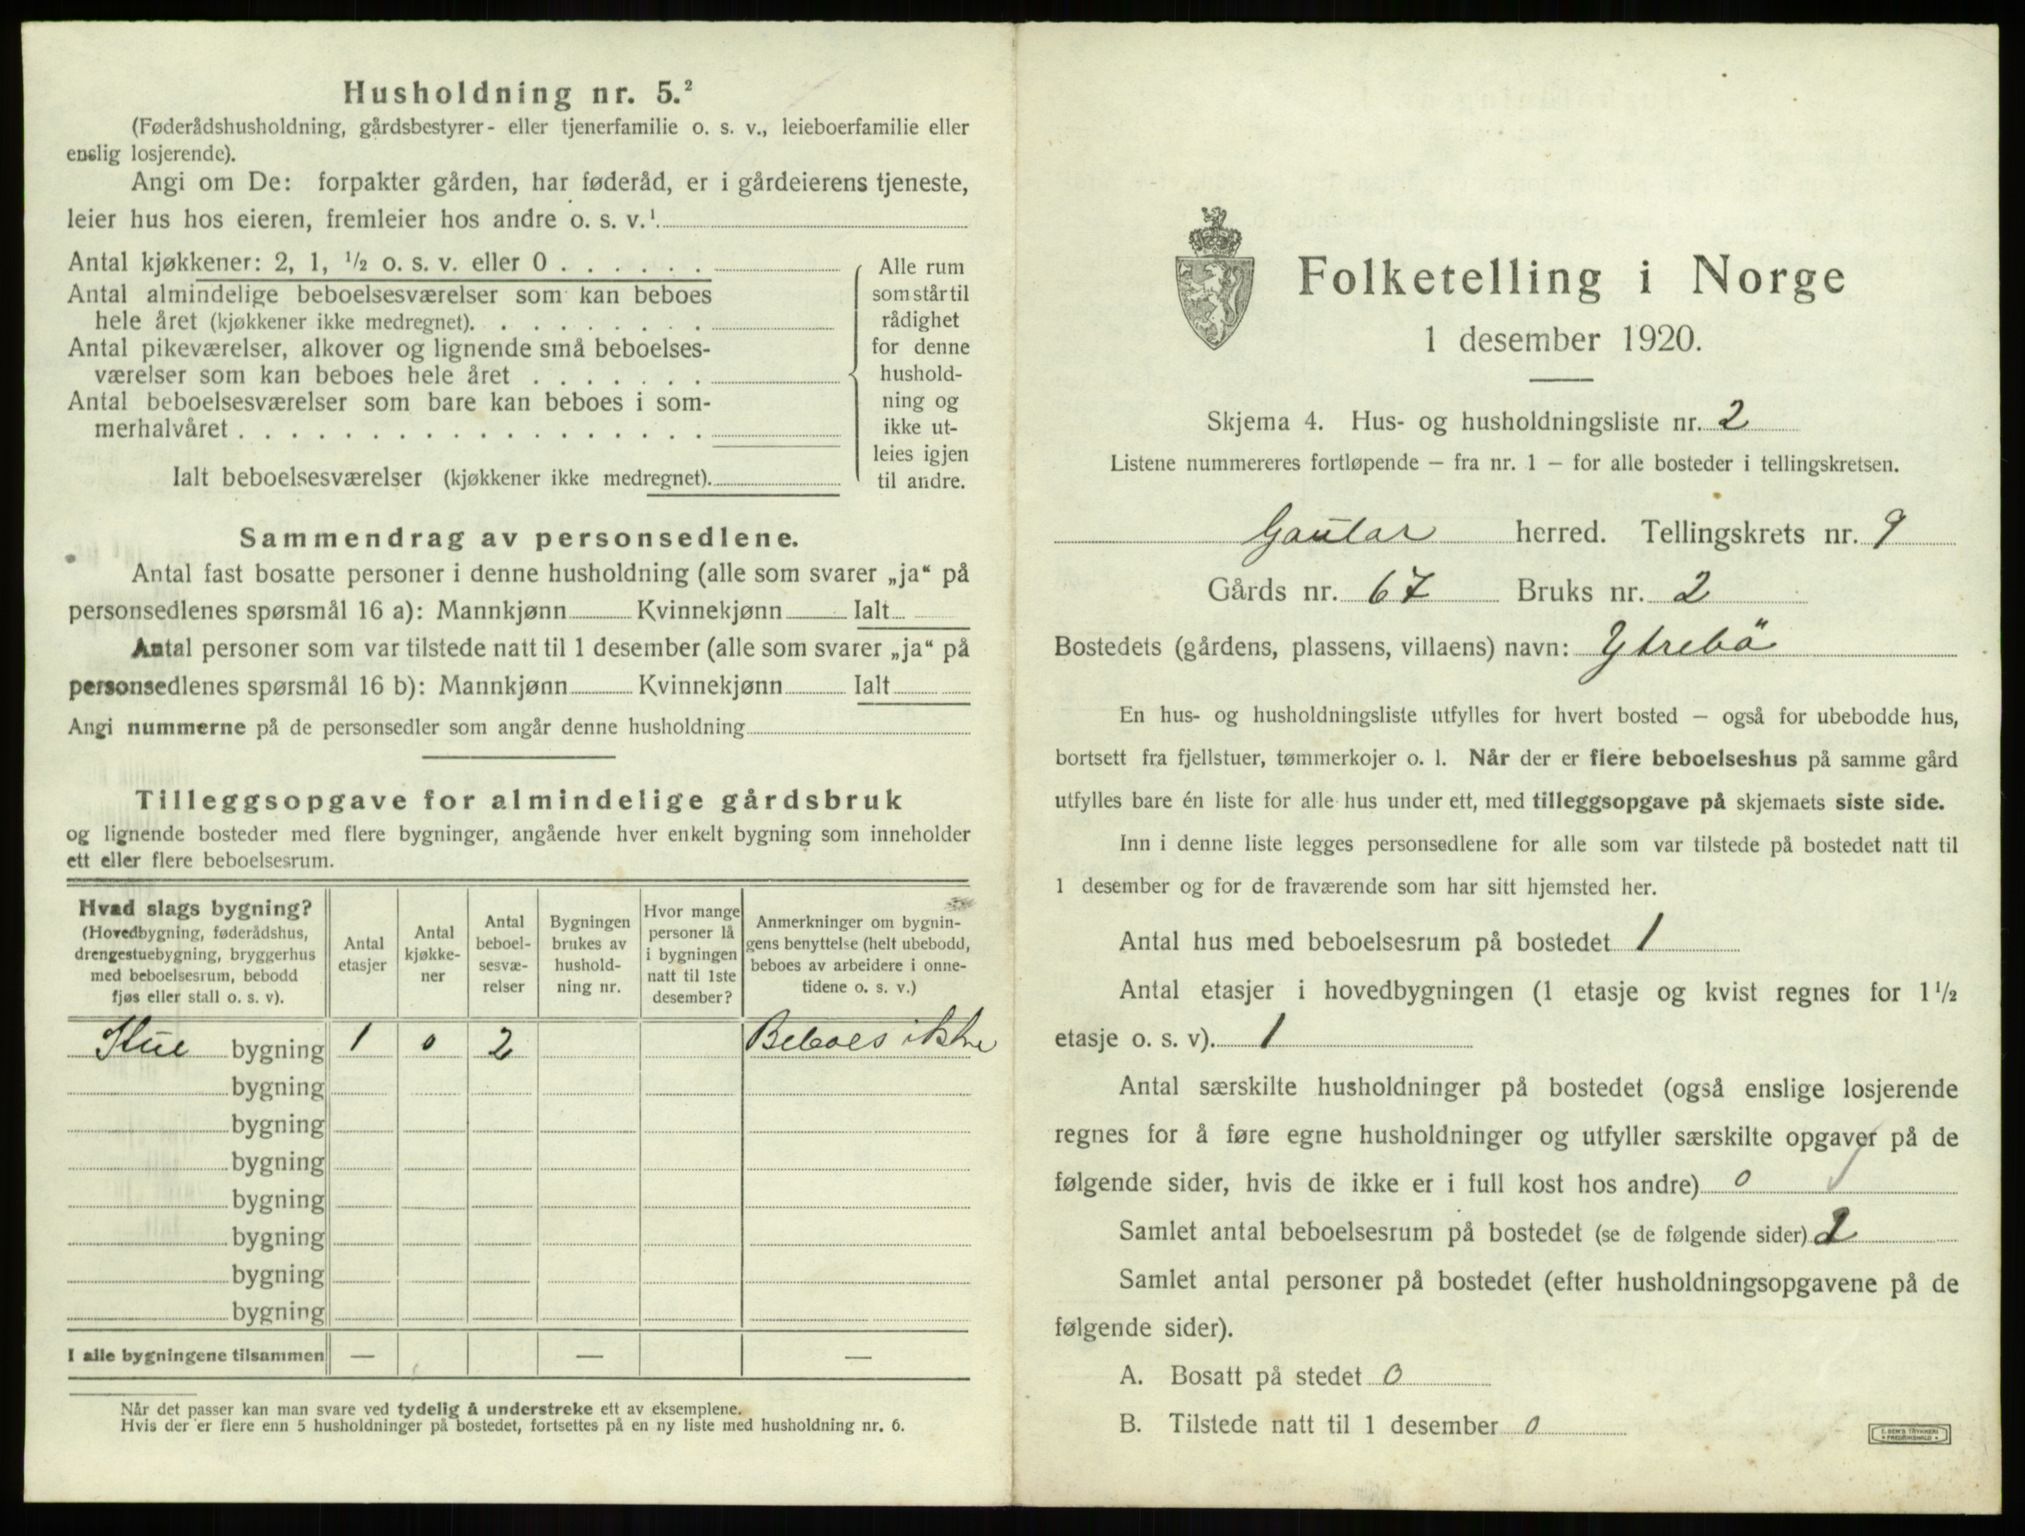 Husholdning nr. 5.²
(Føderådshusholdning, gårdsbestyrer- eller tjenerfamilie o. s. v., leieboerfamilie eller
enslig losjerende).
Angi om De: forpakter gården, har føderåd, er i gårdeierens tjeneste,
leier hus hos eieren, fremleier hos andre o. s. v.¹
Antal kjøkkener: 2, 1, ½ o. s. v. eller 0 . . . . . .
Antal almindelige beboelsesværelser som kan beboes
hele året (kjøkkener ikke medregnet). . . . . . . . .
Antal pikeværelser, alkover og lignende små beboelses-
værelser som kan beboes hele året . . . . . . .
Antal beboelsesværelser som bare kan beboes i som-
merhalvåret . . . . . . . . . . . . . . . . . .
Ialt beboelsesværelser (kjøkkener ikke medregnet).
Alle rum
som står til
rådighet
for denne
hushold-
ning og
ikke ut-
leies igjen
til andre.
Sammendrag av personsedlene.
Antal fast bosatte personer i denne husholdning (alle som svarer „ja“ på
personsedlenes spørsmål 16 a): Mannkjønn Kvinnekjønn Ialt
Antal personer som var tilstede natt til 1 desember (alle som svarer „ja“ på
personsedlenes spørsmål 16 b): Mannkjønn Kvinnekjønn Ialt
Angi nummerne på de personsedler som angår denne husholdning
Tilleggsopgave for almindelige gårdsbruk
og lignende bosteder med flere bygninger, angående hver enkelt bygning som inneholder
ett eller flere beboelsesrum.
Hvad slags bygning?
(Hovedbygning, føderådshus,
drengestuebygning, bryggerhus
med beboelsesrum, bebodd
fjøs eller stall o. s. v).
Antal
etasjer
Antal
kjøkke-
ner
Antal
beboel-
sesvæ-
relser
Bygningen
brukes av
hushold-
ning nr.
Hvor mange
personer lå
i bygningen
natt til 1ste
desember?
Anmerkninger om bygnin-
gens benyttelse (helt ubebodd,
beboes av arbeidere i onne-
tidene o. s. v.)
Stue bygning 1 0 2 Beboes ikke
bygning
bygning
bygning
bygning
bygning
bygning
bygning
I alle bygningene tilsammen — — —
Når det passer kan man svare ved tydelig å understreke ett av eksemplene.
Hvis der er flere enn 5 husholdninger på bostedet, fortsettes på en ny liste med husholdning nr. 6.
Folketelling i Norge
1 desember 1920.
Skjema 4. Hus- og husholdningsliste nr. 2
Listene nummereres fortløpende – fra nr. 1 – for alle bosteder i tellingskretsen.
Gaular herred. Tellingskrets nr. 9
Gårds nr. 67 Bruks nr. 2
Bostedets (gårdens, plassens, villaens) navn: Ytrebö
En hus- og husholdningsliste utfylles for hvert bosted – også for ubebodde hus,
bortsett fra fjellstuer, tømmerkojer o. l. Når der er flere beboelseshus på samme gård
utfylles bare én liste for alle hus under ett, med tilleggsopgave på skjemaets siste side.
Inn i denne liste legges personsedlene for alle som var tilstede på bostedet natt til
1 desember og for de fraværende som har sitt hjemsted her.
Antal hus med beboelsesrum på bostedet 1
Antal etasjer i hovedbygningen (1 etasje og kvist regnes for 1½
etasje o. s. v). 1
Antal særskilte husholdninger på bostedet (også enslige losjerende
regnes for å føre egne husholdninger og utfyller særskilte opgaver på de
følgende sider, hvis de ikke er i full kost hos andre) 0
Samlet antal beboelsesrum på bostedet (se de følgende sider) 2
Samlet antal personer på bostedet (efter husholdningsopgavene på de
følgende sider).
A. Bosatt på stedet 0
B. Tilstede natt til 1 desember 0